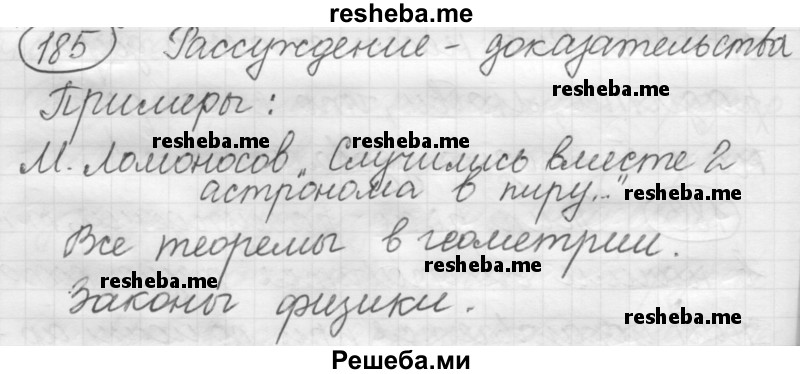 resheba.me
185 Рассуждение - доказательства
resheba.me
Примеры:
resheba.me resheba.me
М. Ломоносов „Случились вместе 2
астронома в пиру..."
resheba.me
Все теоремы в геометрии.
resheba.me
Законы физики.
resheba.me
resheba.me
Решеба.ми